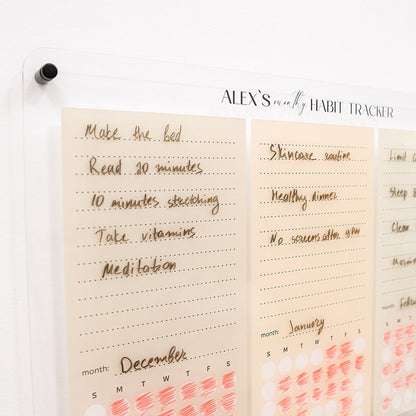 ALEX'S monthly HABIT TRACKER
Make the bed
Read 20 minutes
10 minutes stretching
Take vitamins
Meditation
month: December
S M T W T F S
Skincare routine
Healthy dinner
No screens after 9 PM
month: January
S M T W T F S
Limit
Sleep
Clean
month:
S M